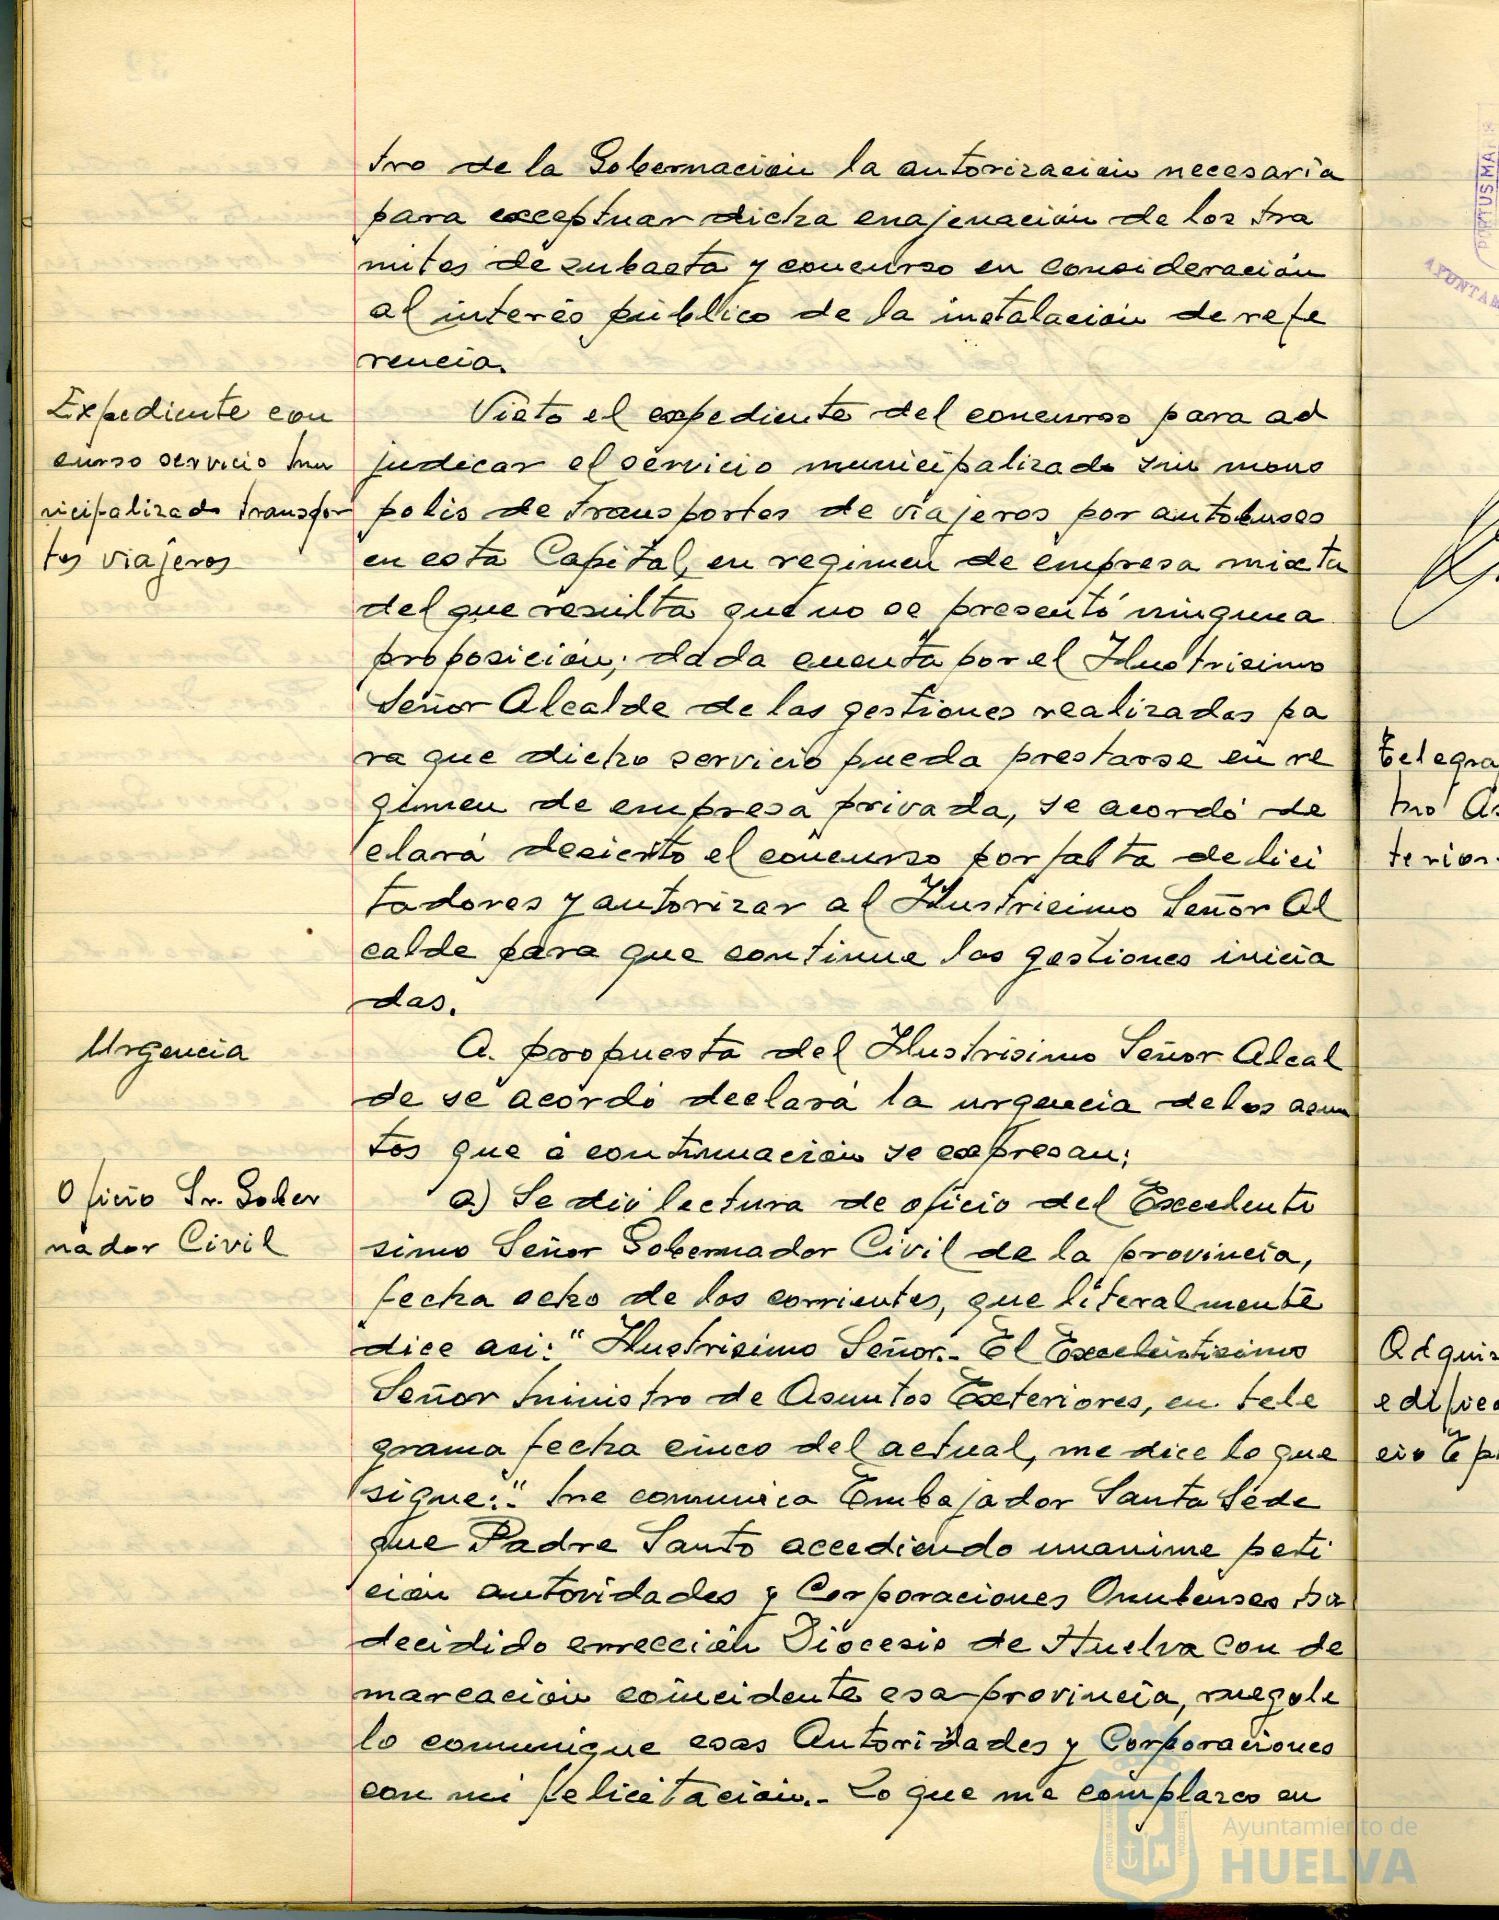 tro de la Gobernación la autorización necesaria
para exceptuar dicha enajenación de los tra
mites de subasta y concurso en consideración
al interés público de la instalación de refe
rencia.
Expediente con
curso servicio mu
nicipalizado transpor
tes viajeros
Visto el expediente del concurso para ad
judicar el servicio municipalizado sin mono
polio de transportes de viajeros por autobuses
en esta Capital, en regimen de empresa mixta
del que resulta que no se presentó ninguna
proposición; dada cuenta por el Ilustrisimo
Señor Alcalde de las gestiones realizadas pa
ra que dicho servicio pueda prestarse en re
gimen de empresa privada, se acordó de
clará desierto el concurso por falta de lici
tadores y autorizar al Ilustrisimo Señor Al
calde para que continue las gestiones inicia
das.
Urgencia
A propuesta del Ilustrisimo Señor Alcal
de se acordó declará la urgencia de los asun
tos que á continuación se expresan:
Oficio Sr. Gober
nador Civil
a) Se dió lectura de oficio del Excelenti
simo Señor Gobernador Civil de la provincia,
fecha ocho de los corrientes, que literalmente
dice asi: "Ilustrisimo Señor.- El Excelentisimo
Señor Ministro de Asuntos Exteriores, en tele
grama fecha cinco del actual, me dice lo que
sigue:" Me comunica Embajador Santa Sede
que Padre Santo accediendo unanime peti
ción autoridades y Corporaciones Onubenses ha
decidido errección Diocesis de Huelva con de
marcación coincidente esa provincia, ruegole
lo comunique esas Autoridades y Corporaciones
con mi felicitación.- Lo que me complazco en
Telegra
mo As
terior
Adquis
edifica
cio Ep
PORTUS MARIS
AYUNTAM
Ayuntamiento de
HUELVA